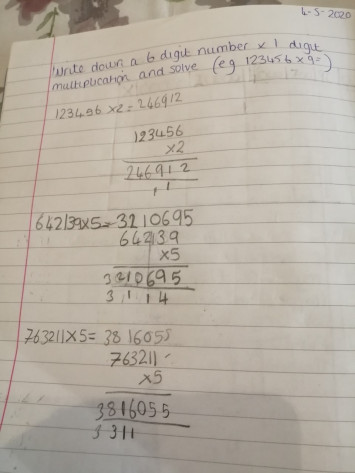 4-5-2020
Write down a 6 digit number x 1 digit
multiplication and solve (eg 123456 x 9=)
123456 x2=246912
123456
x2
246912
1 1
642139x5=3210695
642139
x5
3210695
3 1 1 4
763211x5=3816055
763211
x5
3816055
3 3 1 1